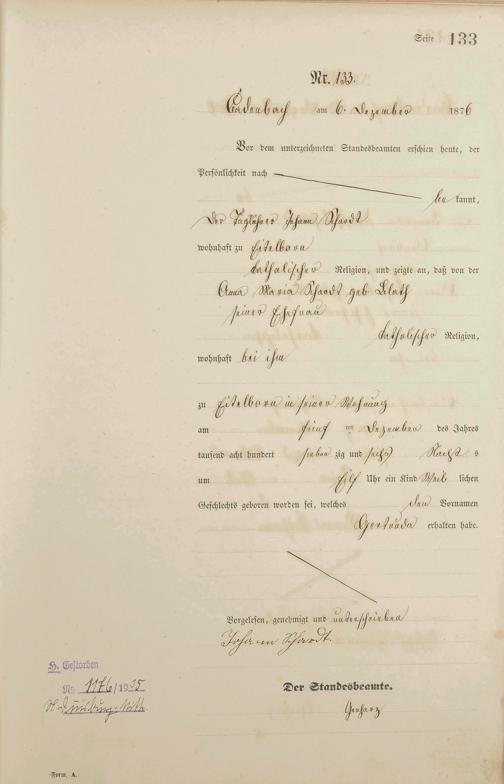 Seite 133
Nr. 133.
Cadenbach am 6. Dezember 1876
Vor dem unterzeichneten Standesbeamten erschien heute, der
Persönlichkeit nach
be kannt,
der Taglöhner Johann Schardt
wohnhaft zu Eitelborn
katholischer Religion, und zeigte an, daß von der
Anna Maria Schardt geb.
seiner Ehefrau
katholischer Religion,
wohnhaft bei ihm
zu Eitelborn in seiner Wohnung
am fünf ten Dezember des Jahres
tausend acht hundert sieben zig und sechs Nachts
um Elf Uhr ein Kind Weib lichen
Geschlechts geboren worden sei, welches den Vornamen
Gertruda erhalten habe.
Vorgelesen, genehmigt und unterschrieben
Johann Schardt.
Der Standesbeamte.
H. Gestorben
No 1176/1935
St. A.
Form. A.